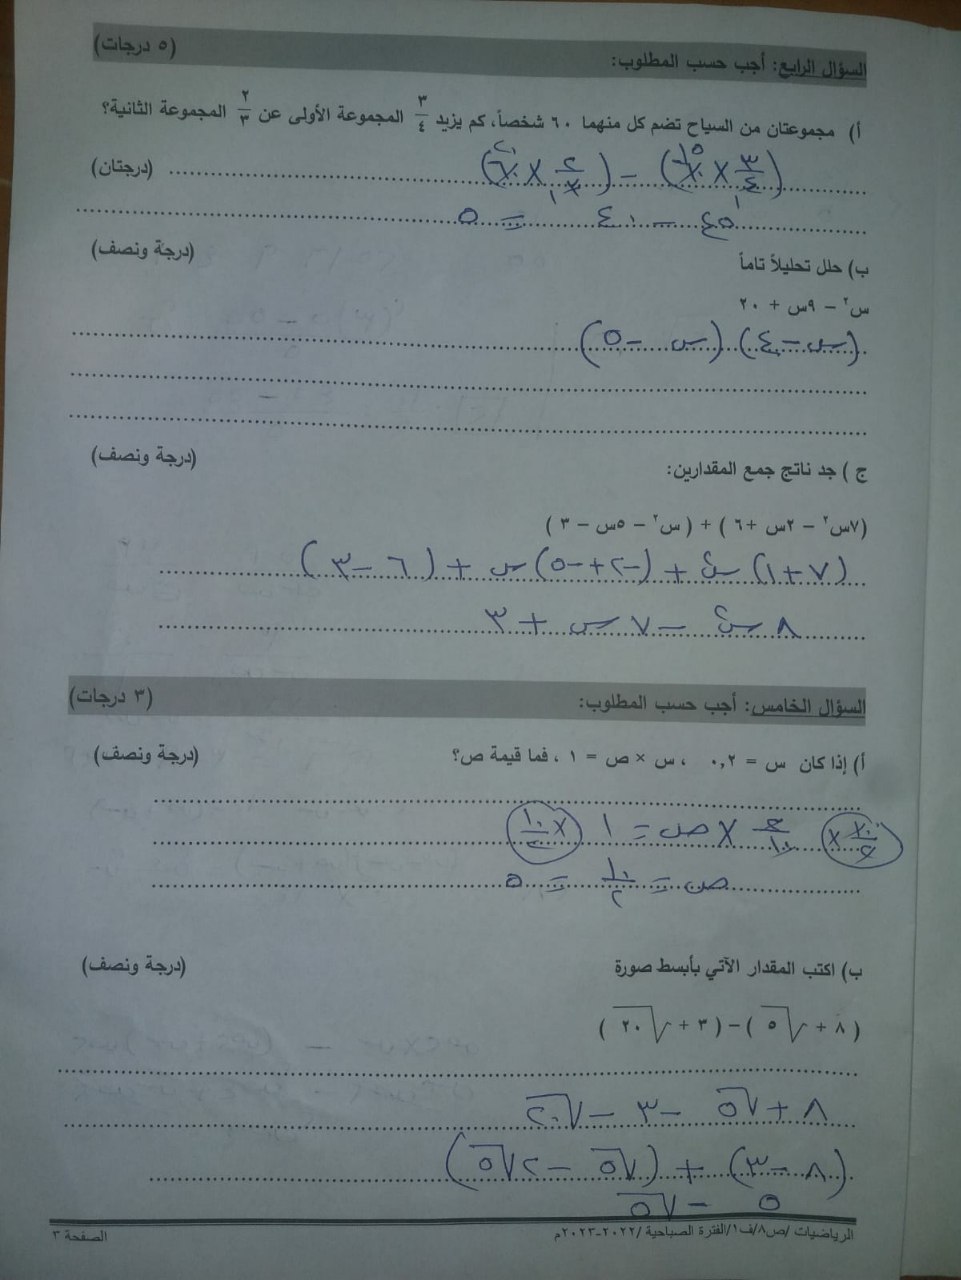 السؤال الرابع: أجب حسب المطلوب: (٥ درجات)
أ) مجموعتان من السياح تضم كل منهما ٦٠ شخصاً، كم يزيد ٣/٤ المجموعة الأولى عن ٢/٣ المجموعة الثانية؟
(٣/٤ × ٦٠) – (٢/٣ × ٦٠) (درجتان)
٤٥ – ٤٠ = ٥
ب) حلل تحليلاً تاماً (درجة ونصف)
س٢ – ٩س + ٢٠
(س – ٤) (س – ٥)
ج) جد ناتج جمع المقدارين: (درجة ونصف)
(٧س٢ – ٢س + ٦) + (س٢ – ٥س – ٣)
(٧ + ١) س٢ + (-٢ + -٥) س + (٦ – ٣)
٨ س٢ – ٧ س + ٣
السؤال الخامس: أجب حسب المطلوب: (٣ درجات)
أ) إذا كان س = ٠,٢ ، س × ص = ١ ، فما قيمة ص؟ (درجة ونصف)
× ١٠/٢ ٢/١٠ × ص = ١ × ١٠/٢
ص = ١٠/٢ = ٥
ب) اكتب المقدار الآتي بأبسط صورة (درجة ونصف)
(٨ + √٥) – (٣ + √٢٠)
٨ + √٥ – ٣ – √٢٠
(٨ – ٣) + (√٥ – ٢√٥)
٥ – √٥
الرياضيات /ص٨/ف١/الفترة الصباحية /٢٠٢٢-٢٠٢٣م الصفحة ٣